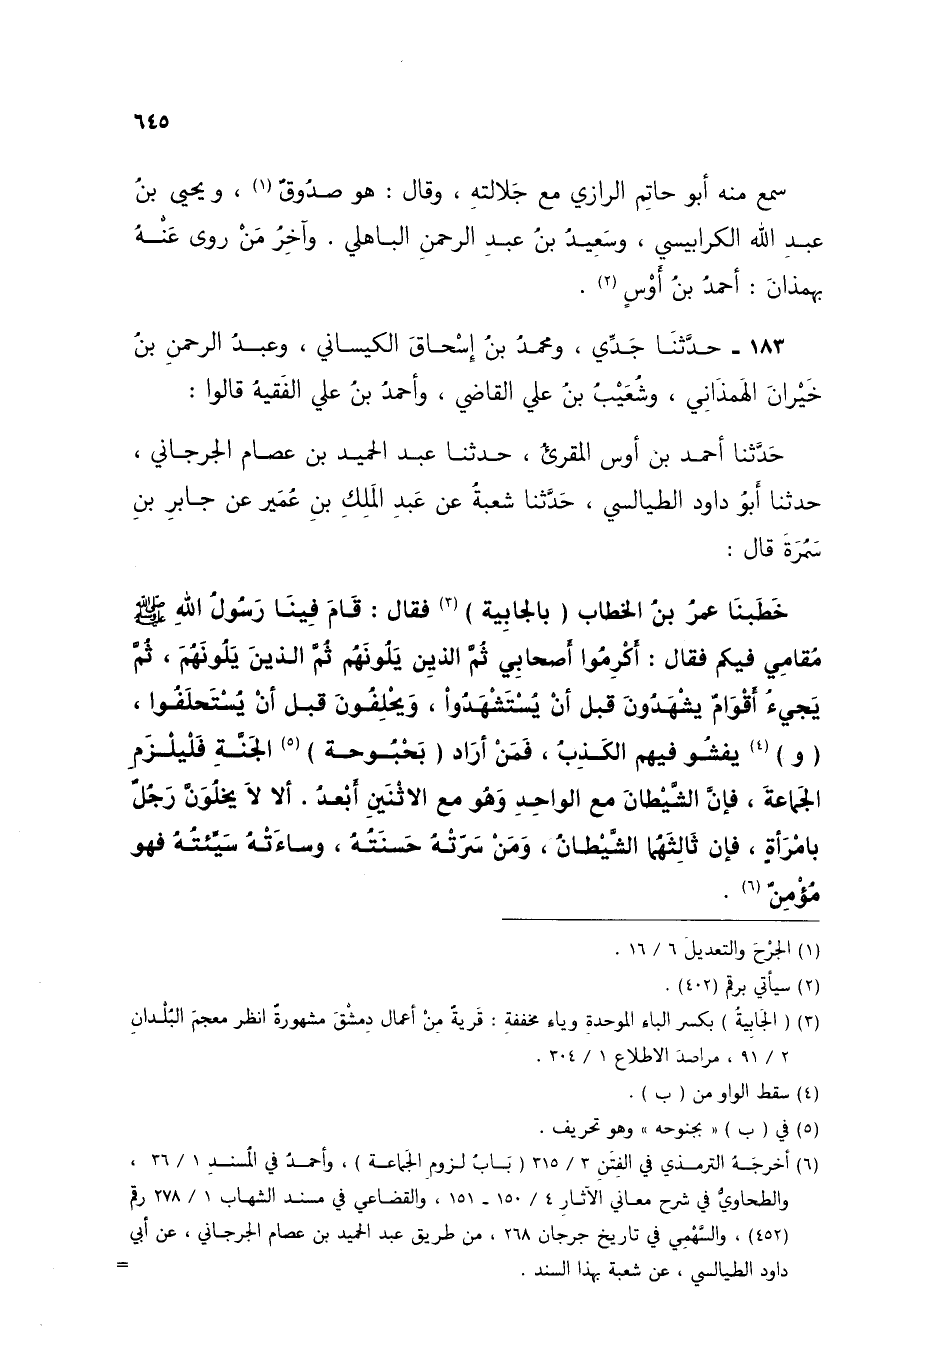 ٦٤٥
سمع منه أبو حاتم الرازي مع جَلالتِه ، وقال : هو صدُوقٌ (١) ، ويحيى بنُ
عبدِ الله الكرابيسي ، وسَعِيدُ بنُ عبدِ الرحمن الباهلي . وآخِرُ مَنْ روى عَنْهُ
بهمذانَ : أحمدُ بنُ أَوْسٍ (٢) .
١٨٣ ـ حدَّثنَا جَدِّي ، ومحمدُ بنُ إسْحاقَ الكيساني ، وعبدُ الرحمنِ بنُ
خَيْرانَ الهَمذَاني ، وشُعَيْبُ بنُ علي القاضي ، وأحمدُ بنُ علي الفَقيهُ قالوا :
حَدَّثنا أحمد بن أوس المقرئُ ، حدثنا عبد الحميد بن عصام الجرجاني ،
حدثنا أَبوُ داود الطيالسي ، حَدَّثنا شعبةُ عن عَبدِ المَلِكِ بنِ عُمَير عن جابرِ بنِ
سَمُرَةَ قال :
خَطَبنَا عمرُ بنُ الخطاب ( بالجابية ) (٣) فقال : قَامَ فِينَا رَسُولُ اللهِ ﷺ
مُقامِي فيكم فقال : أَكْرِمُوا أَصحابي ثُمَّ الذين يَلُونَهُم ثُمَّ الذينَ يَلُونَهُمَ ، ثُمَّ
يَجيءُ أَقْوَامٌ يشْهَدُونَ قبل أنْ يُسْتَشْهَدُواْ ، وَيَحْلِفُونَ قبل أنْ يُسْتَحلَفُوا ،
( و ) (٤) يفشُو فيهم الكَذِبُ ، فَمَنْ أرَاد ( بَحْبُوحة ) (٥) الجَنَّةِ فَليلْزَمِ
الجماعةَ ، فإنَّ الشَّيْطانَ مع الواحدِ وَهُو مع الاثْنَينِ أَبْعدُ . ألا لاَ يخلُوَنَّ رَجُلٌ
بامْرَأةٍ ، فإن ثَالثَهُما الشَّيْطانُ ، وَمَنْ سَرَّتْهُ حَسَنَتُهُ ، وساءَتْهُ سَيِّئتُهُ فهو
مُؤْمِنٌ (٦) .
(١) الجَرْحَ والتعديلَ ٦ / ١٦ .
(٢) سيأتي برقم (٤٠٢) .
(٣) ( الجَابيةُ ) بكسر الباء الموحدة وياء مخففة : قَريةٌ مِنْ أعمال دِمشْقَ مشهورةٌ انظر معجمَ البُلْدان
٢ / ٩١ ، مراصدَ الاطلاع ١ / ٣٠٤ .
(٤) سقط الواو من ( ب ) .
(٥) في ( ب ) « بجنوحه » وهو تحريف .
(٦) أخرجَهُ الترمذي في الفِتَنِ ٣ / ٣١٥ ( بَابُ لزومِ الجَماعةِ ) ، وأحمدُ في المُسندِ ١ / ٢٦ ،
والطحاويُّ في شرح معاني الآثار ٤ / ١٥٠ ـ ١٥١ ، والقضاعي في مسند الشهاب ١ / ٢٧٨ رقم
(٤٥٢) ، والسَّهْمِي في تاريخ جرجان ٢٦٨ ، من طريق عبد الحميد بن عصام الجرجاني ، عن أبي
داود الطيالسي ، عن شعبة بهذا السند .
=